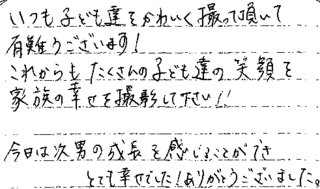 いつも子ども達をかわいく撮って頂いて
有難うございます！
これからもたくさんの子ども達の笑顔を
家族の幸せを撮影して下さい!!
今日は次男の成長を感じることができ
とても幸せでした！ありがとうございました。